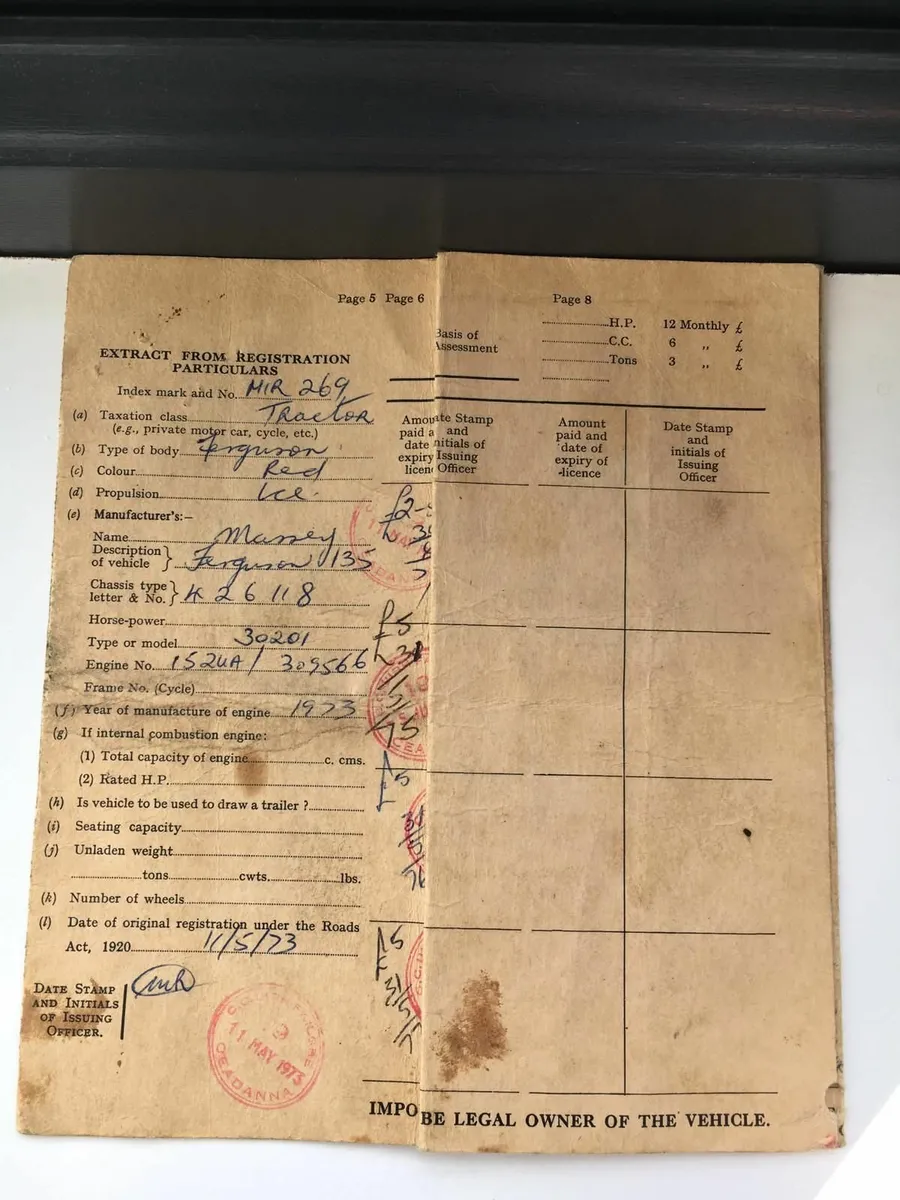 Page 5 Page 6
Page 8
EXTRACT FROM REGISTRATION
PARTICULARS
Index mark and No. MIR 269
(a) Taxation class Tractor
(e.g., private motor car, cycle, etc.)
(b) Type of body Ferguson
(c) Colour Red
(d) Propulsion Ice.
(e) Manufacturer's:—
Name Massey
Description of vehicle } Ferguson 135
Chassis type letter & No. } 426118
Horse-power
Type or model 30201
Engine No. 152UA / 309566
Frame No. (Cycle)
(f) Year of manufacture of engine 1973
(g) If internal combustion engine:
(1) Total capacity of engine c. cms.
(2) Rated H.P.
(h) Is vehicle to be used to draw a trailer ?
(i) Seating capacity
(j) Unladen weight
tons cwts. lbs.
(k) Number of wheels
(l) Date of original registration under the Roads
Act, 1920 11/5/73
DATE STAMP
AND INITIALS
OF ISSUING
OFFICER.
11 MAY 1973
CEADANNA
Amou
paid a
date
expiry
licen
£5
/75
£5
Basis of
Assessment
te Stamp
and
nitials of
Issuing
Officer
H.P. 12 Monthly £
C.C. 6 ,, £
Tons 3 ,, £
Amount
paid and
date of
expiry of
-licence
Date Stamp
and
initials of
Issuing
Officer
IMPO
BE LEGAL OWNER OF THE VEHICLE.